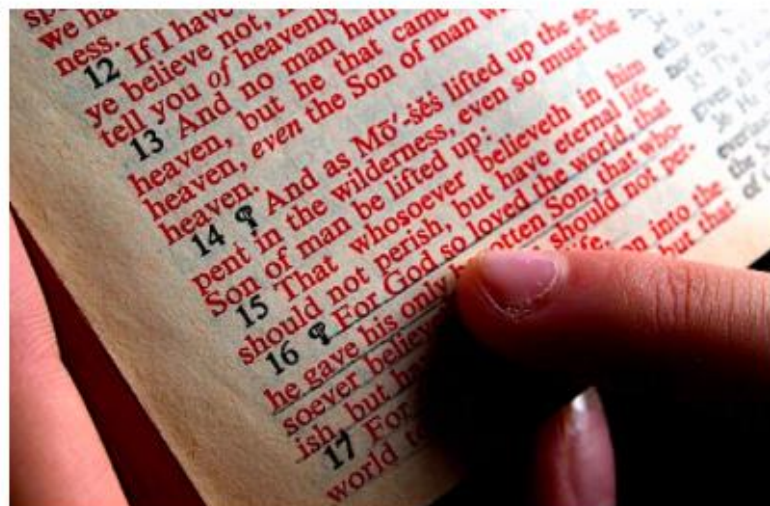 we ha
ness.
12 If I have
ye believe not,
tell you of heavenly
13 And no man hath
heaven, but he that came
heaven, even the Son of man w
heaven.
14 ¶ And as Mō′-sĕs lifted up the ser
pent in the wilderness, even so must the
Son of man be lifted up:
15 That whosoever believeth in him
should not perish, but have eternal life.
16 ¶ For God so loved the world, that
he gave his only b gotten Son, that who-
soever believe should not per-
ish, but ha life.
17 For on into the
world to but that